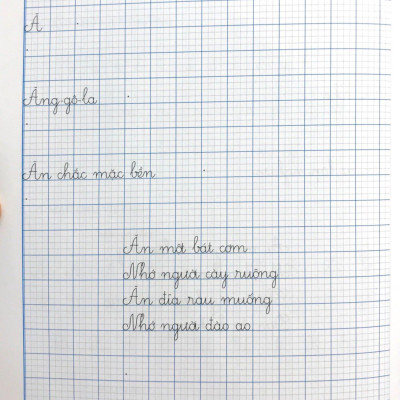 Ă
Ăng-gô-la
Ăn chắc mặc bền
Ăn một bát cơm
Nhớ người cày ruộng
Ăn đĩa rau muống
Nhớ người đào ao.